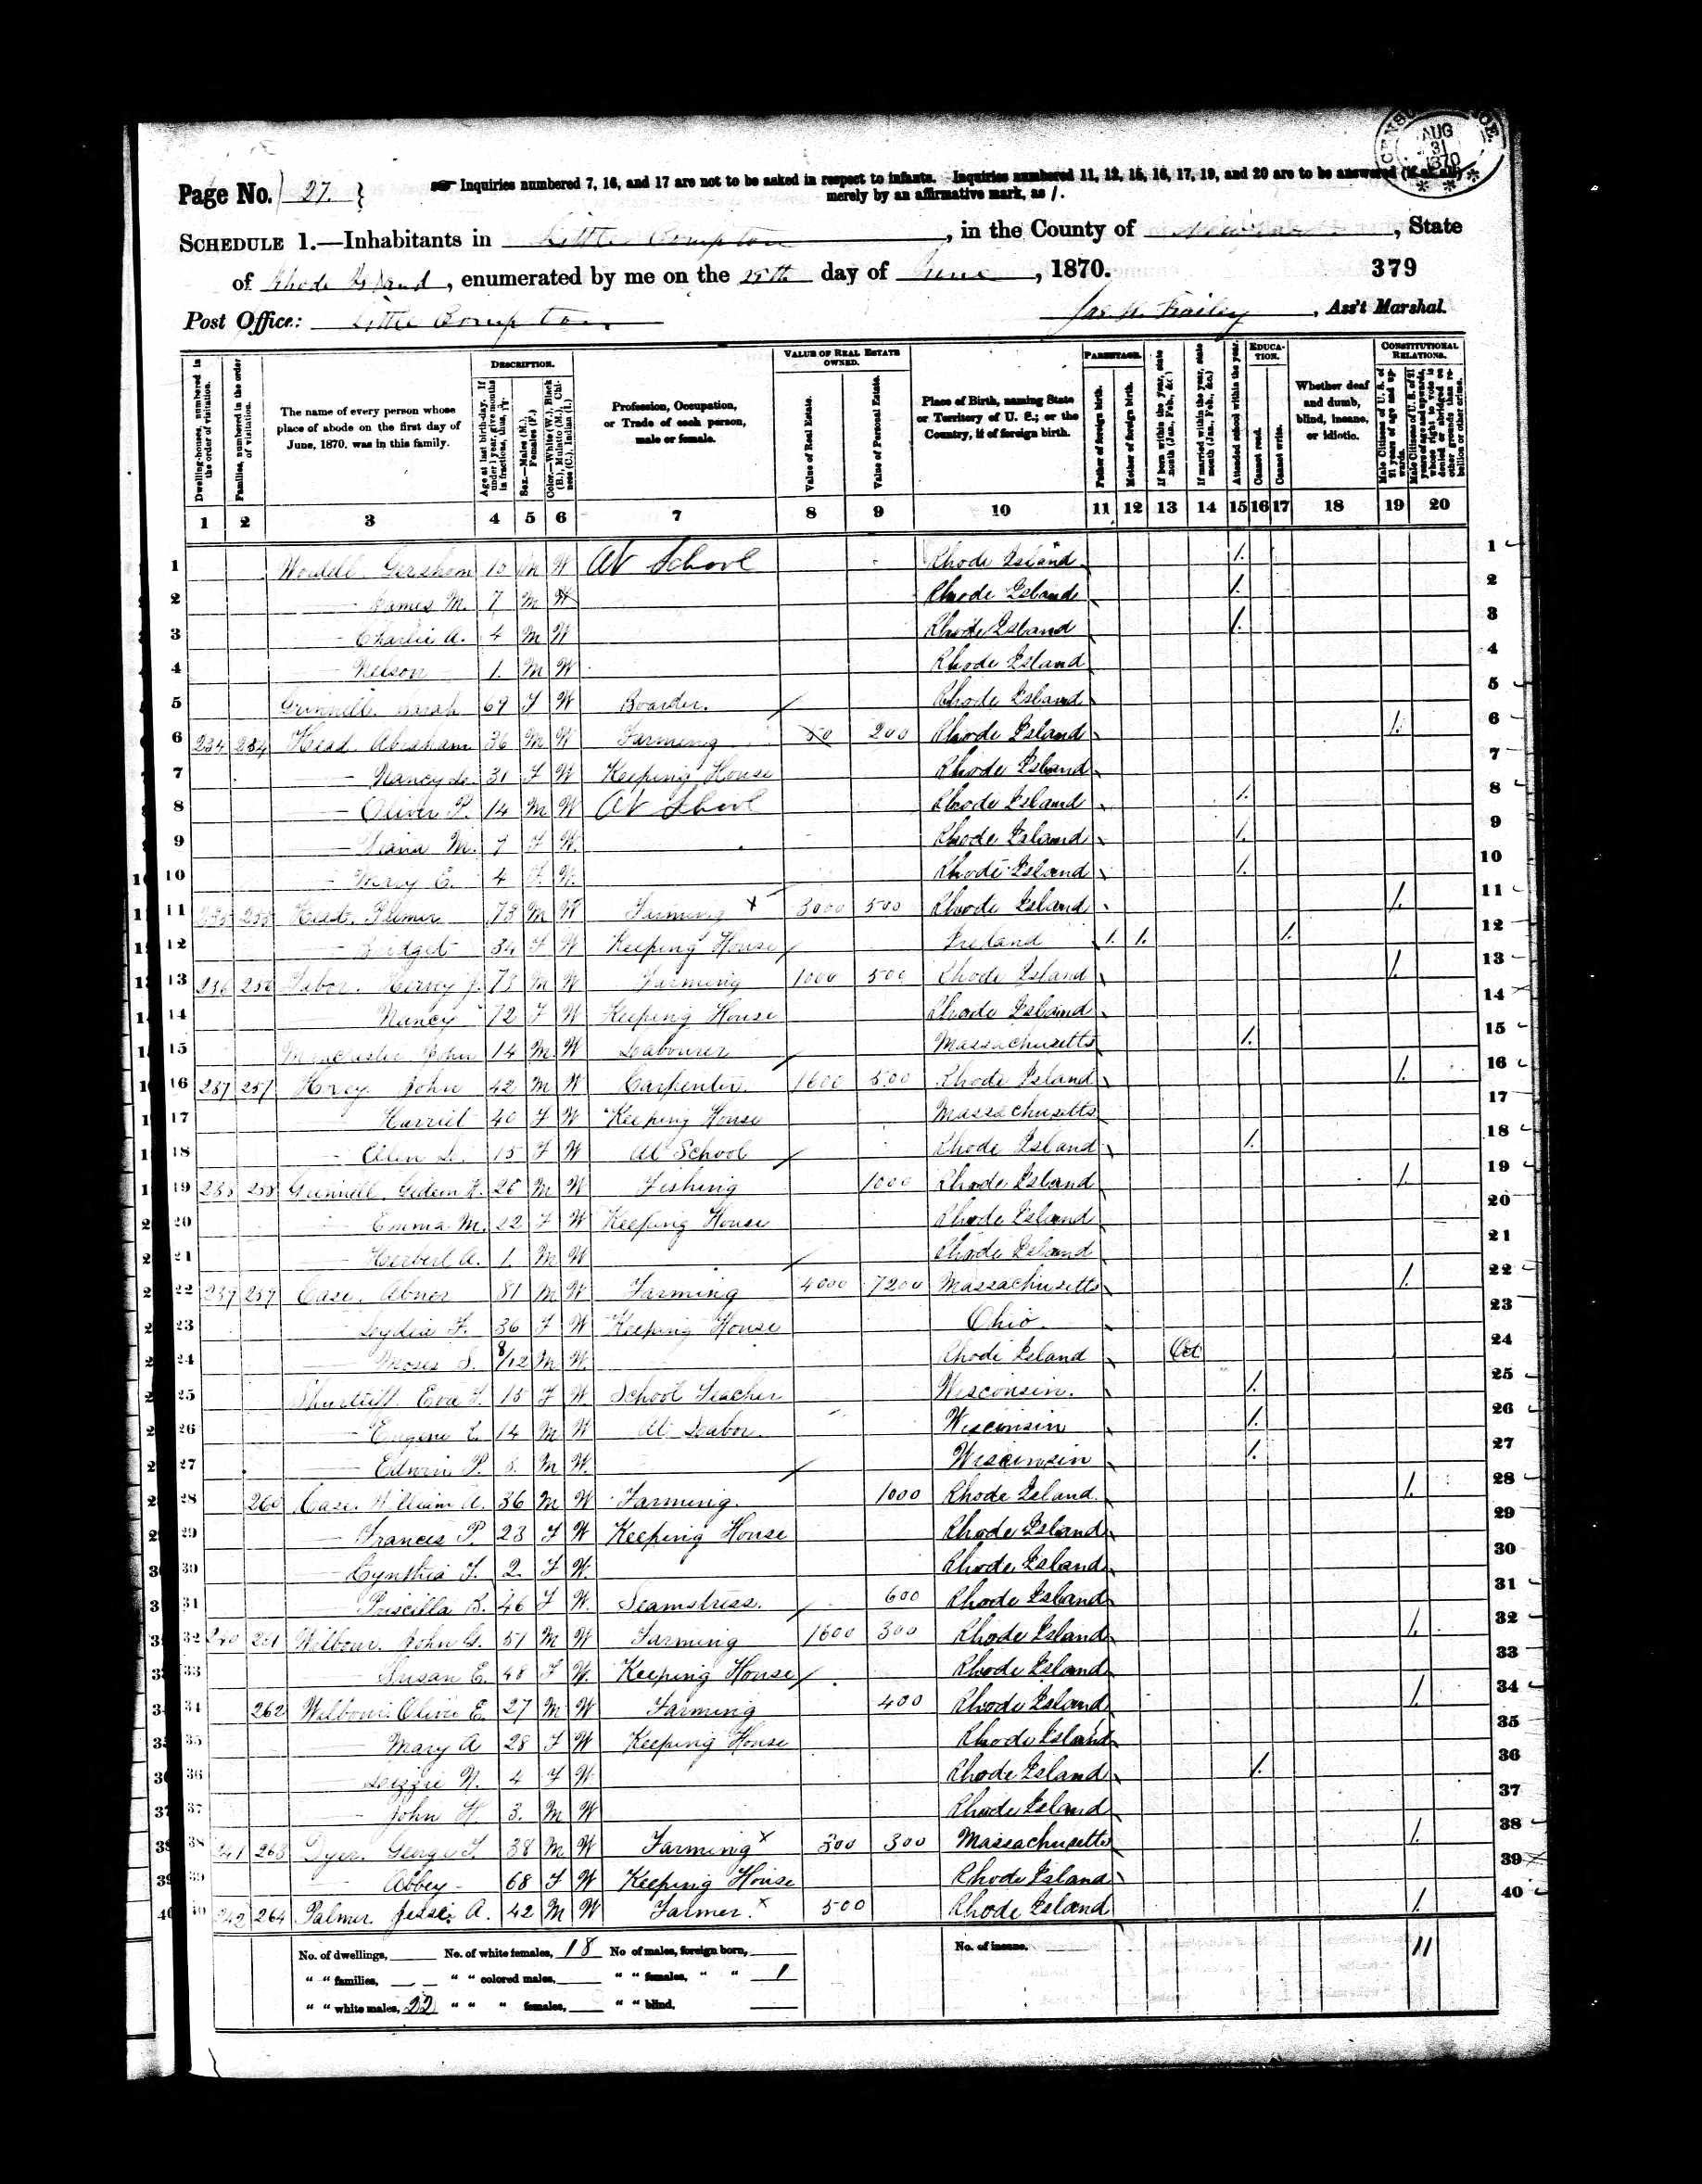 CENSUS OFFICE AUG 31 1870
Page No. 27.
Inquiries numbered 7, 16, and 17 are not to be asked in respect to infants. Inquiries numbered 11, 12, 15, 16, 17, 19, and 20 are to be answered (if at all)
merely by an affirmative mark, as /.
SCHEDULE 1.—Inhabitants in Little Compton, in the County of Newport, State
of Rhode Island, enumerated by me on the 25th day of June, 1870. 379
Post Office: Little Compton. Ass't Marshal.
Dwelling-houses, numbered in the order of visitation.
Families, numbered in the order of visitation.
The name of every person whose place of abode on the first day of June, 1870, was in this family.
DESCRIPTION.
Age at last birth-day. If under 1 year, give months in fractions, thus,
Sex.—Males (M.), Females (F.)
Color.—White (W.), Black (B.), Mulatto (M.), Chinese (C.), Indian (I.)
Profession, Occupation, or Trade of each person, male or female.
VALUE OF REAL ESTATE OWNED.
Value of Real Estate.
Value of Personal Estate.
Place of Birth, naming State or Territory of U. S.; or the Country, if of foreign birth.
PARENTAGE.
Father of foreign birth.
Mother of foreign birth.
If born within the year, state month (Jan., Feb., &c.)
If married within the year, state month (Jan., Feb., &c.)
Attended school within the year.
EDUCATION.
Cannot read.
Cannot write.
Whether deaf and dumb, blind, insane, or idiotic.
CONSTITUTIONAL RELATIONS.
Male Citizens of U. S. of 21 years of age and upwards.
Male Citizens of U. S. of 21 years of age and upwards, whose right to vote is denied or abridged on other grounds than rebellion or other crime.
1 2 3 4 5 6 7 8 9 10 11 12 13 14 15 16 17 18 19 20
1 Wordell. Gershom 10 M W At School Rhode Island 1. 1
2 — James M. 7 M W Rhode Island 1. 2
3 — Charlie A. 4 M W Rhode Island 1. 3
4 — Nelson 1. M W Rhode Island 4
5 Grinnell. Sarah 69 F W Boarder. Rhode Island 5
6 234 254 Head. Abraham 36 M W Farming 50 200 Rhode Island 1. 6
7 — Nancy 31 F W Keeping House Rhode Island 7
8 — Oliver P. 14 M W At School Rhode Island 1. 8
9 — M. 7 F W. Rhode Island 1. 9
10 — Mary E. 4 F. W. Rhode Island 1. 10
11 235 255 Head. 73 M W Farming x 3000 500 Rhode Island 1. 11
12 — Bridget 34 F W Keeping House Ireland 1. 1. 1. 12
13 236 256 Tabor. J. 78 M W Farming 1000 500 Rhode Island 1. 13
14 Nancy 72 F W Keeping House Rhode Island 14
15 Manchester John 14 M. W Labourer Massachusetts 1. 15
16 237 257 John 42 M W Carpenter. 1600 500 Rhode Island 1. 16
17 — Harriet 40 F W Keeping House Massachusetts 17
18 — 15 F W At School Rhode Island 1. 18
19 238 258 Grinnell. Gideon H. 25 M W Fishing 1000 Rhode Island 1. 19
20 — Emma M. 22 F W Keeping House Rhode Island 20
21 — Herbert A. 1. M W Rhode Island 21
22 239 259 Case. Abner 81 M W Farming 4000 7200 Massachusetts 1. 22
23 — Lydia F. 36 F W Keeping House Ohio. 23
24 — Moses S. 8/12 M W. Rhode Island Oct 24
25 Shurtliff. Eva 15 F W School Teacher Wisconsin. 1. 25
26 — Eugene L. 14 M W At Labor. Wisconsin 1. 26
27 — Edwin P. M W. Wisconsin 1. 27
28 260 Case. William A. 36 M W Farming. 1000 Rhode Island. 1. 28
29 — Frances P. 23 F W Keeping House Rhode Island 29
30 — Cynthia 2. F W. Rhode Island 30
31 — Priscilla B. 46 F W. Seamstress. 600 Rhode Island 31
32 240 261 Wilbour. John 51 M W Farming 1600 300 Rhode Island 1. 32
33 — Susan E. 48 F W. Keeping House Rhode Island 33
34 262 Wilbour. E. 27 M W Farming 400 Rhode Island 1. 34
35 — Mary A 28 F W Keeping House Rhode Island 35
36 — Lizzie N. 4 F W Rhode Island 1. 36
37 — John H. 3. M W Rhode Island 37
38 241 263 Dyer. George 38 M W Farming x 300 300 Massachusetts 1. 38
39 — Abbey 68 F W Keeping House Rhode Island 39
40 242 264 Palmer. Jesse A. 42 M W Farmer. x 500 Rhode Island 1. 40
No. of dwellings, No. of white females, 18 No of males, foreign born, No. of insane, 11
" " families, " " colored males, " " females, " " 1
" " white males, 22 " " " females, " " blind,